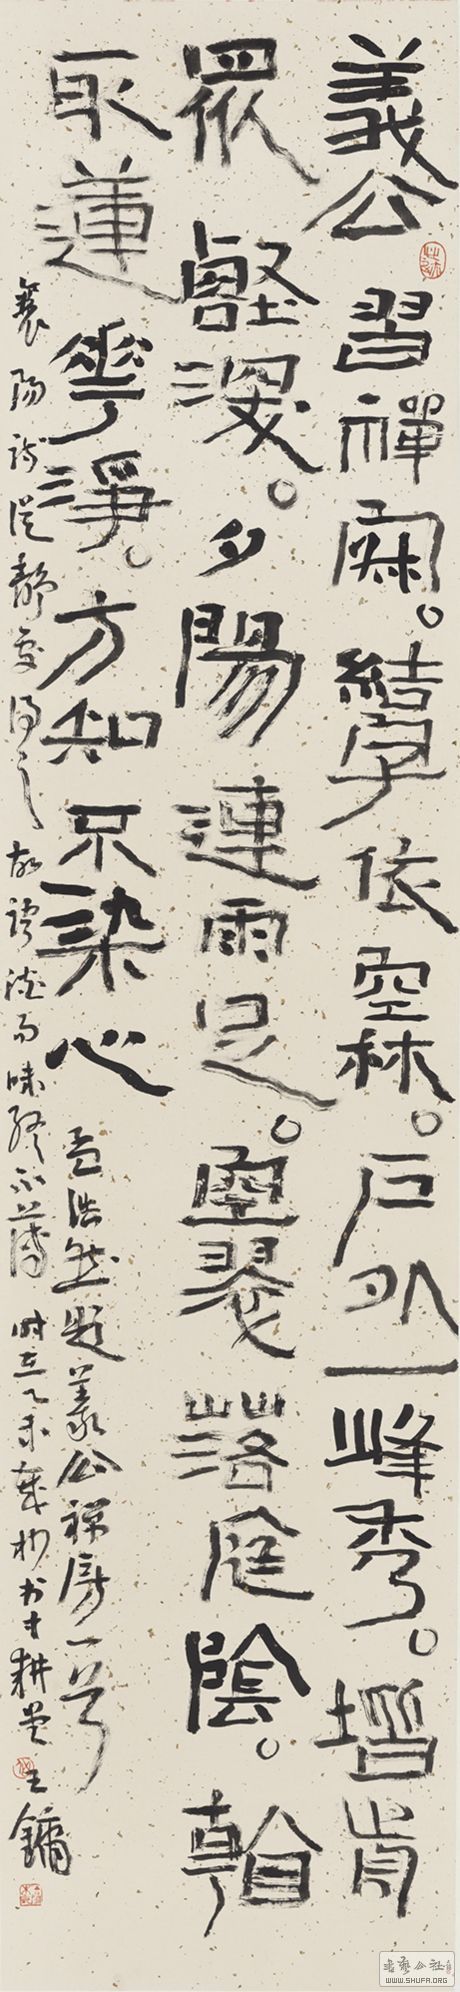 義公習禪寂。結宇依空林。戶外一峰秀。堦前
眾壑深。夕陽連雨足。空翠落庭陰。看
取蓮華淨。方知不染心 孟浩然題義公禪房一首
襄陽詩從靜處得之 故語淡而味終不薄 時在乙未歲杪书于耕堂 王鏞
書藝公社
WWW.SHUFA.ORG